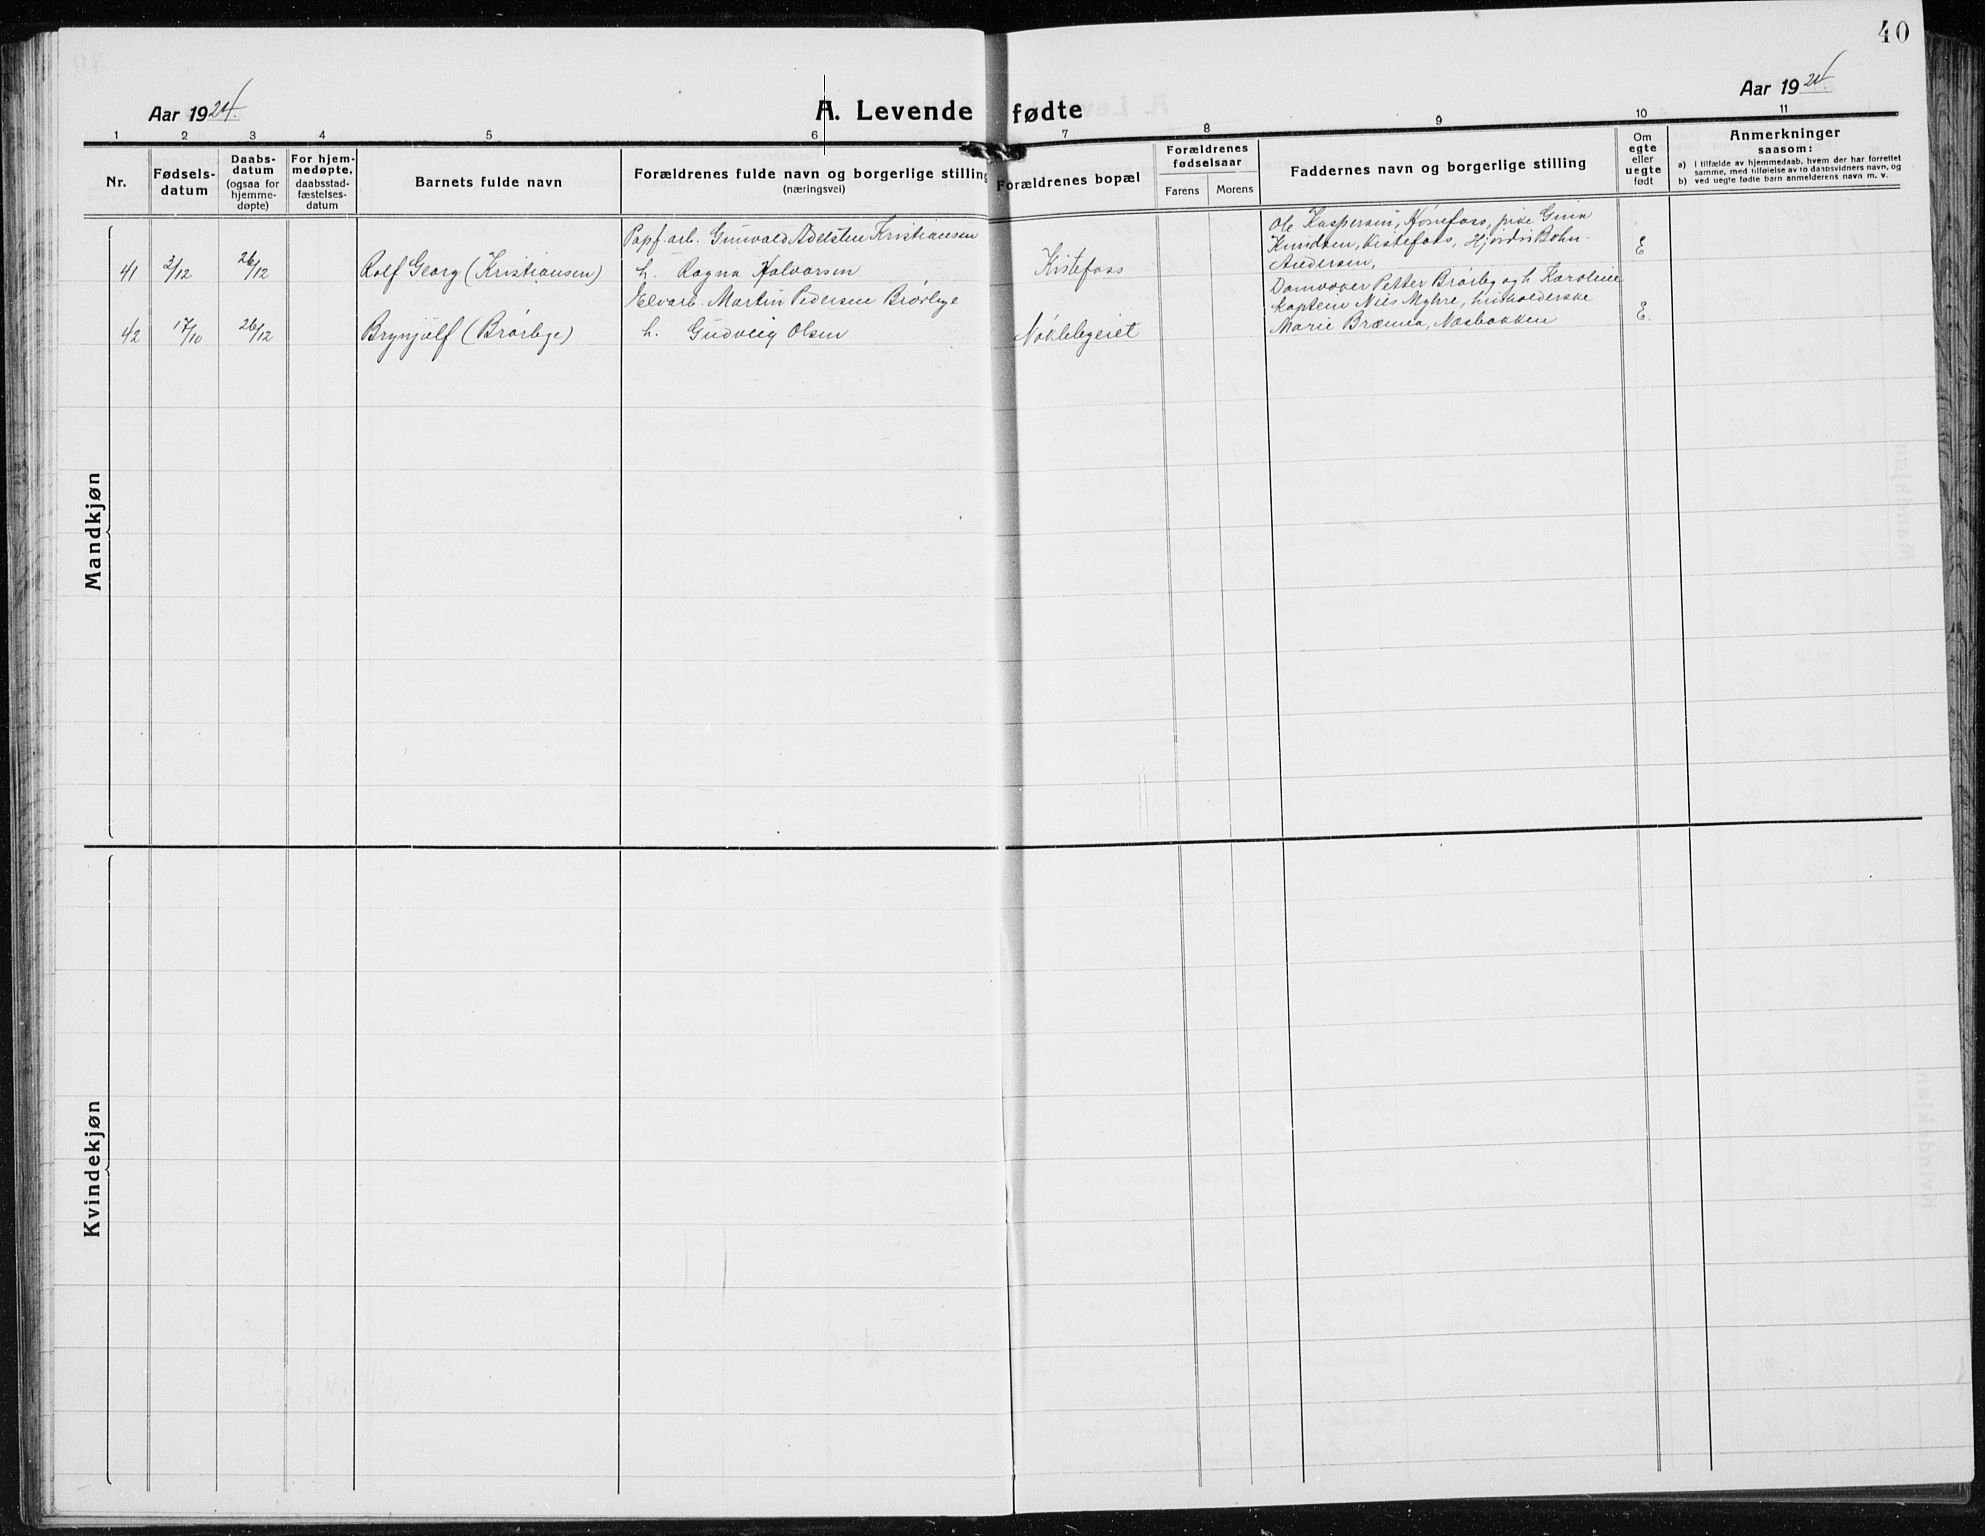 40
Aar 1924.
A. Levende fødte
Aar 1924.
1 2 3 4 5 6 7 8 9 10 11
Nr.
Fødsels-
datum
Daabs-
datum
(ogsaa for
hjemme-
døpte)
For hjem-
medøpte,
daabsstad-
fæstelses-
datum
Barnets fulde navn
Forældrenes fulde navn og borgerlige stilling
(næringsvei)
Forældrenes bopæl
Forældrenes
fødselsaar
Farens Morens
Faddernes navn og borgerlige stilling
Om
egte
eller
uegte
født
Anmerkninger
saasom:
a) I tilfælde av hjemmedaab, hvem der har forrettet
samme, med tilføielse av to daabsvidners navn, og
b) ved uegte fødte barn anmelderens navn m. v.
Mandkjøn
Papf. arb. Gunvald Adelsten Kristiansen
41 3/12 26/12 Rolf Georg (Kristiansen) h. Ragna Halvorsen Kistefoss
Ole Kaspersen, Hønefoss, pike Gina
Knudsen, Kistefoss, Hjørdis Bohn-
Andersen,
E
Elvarb. Martin Pedersen Brørbye
42 17/10 26/12 Brynjulf (Brørbye) h. Gudveig Olsen
Damvover Petter Brørby og h. Karoline
Kaptein Nils Myhre, husholderske
Marie Bræmea, Næsbakken
E.
Kvindekjøn